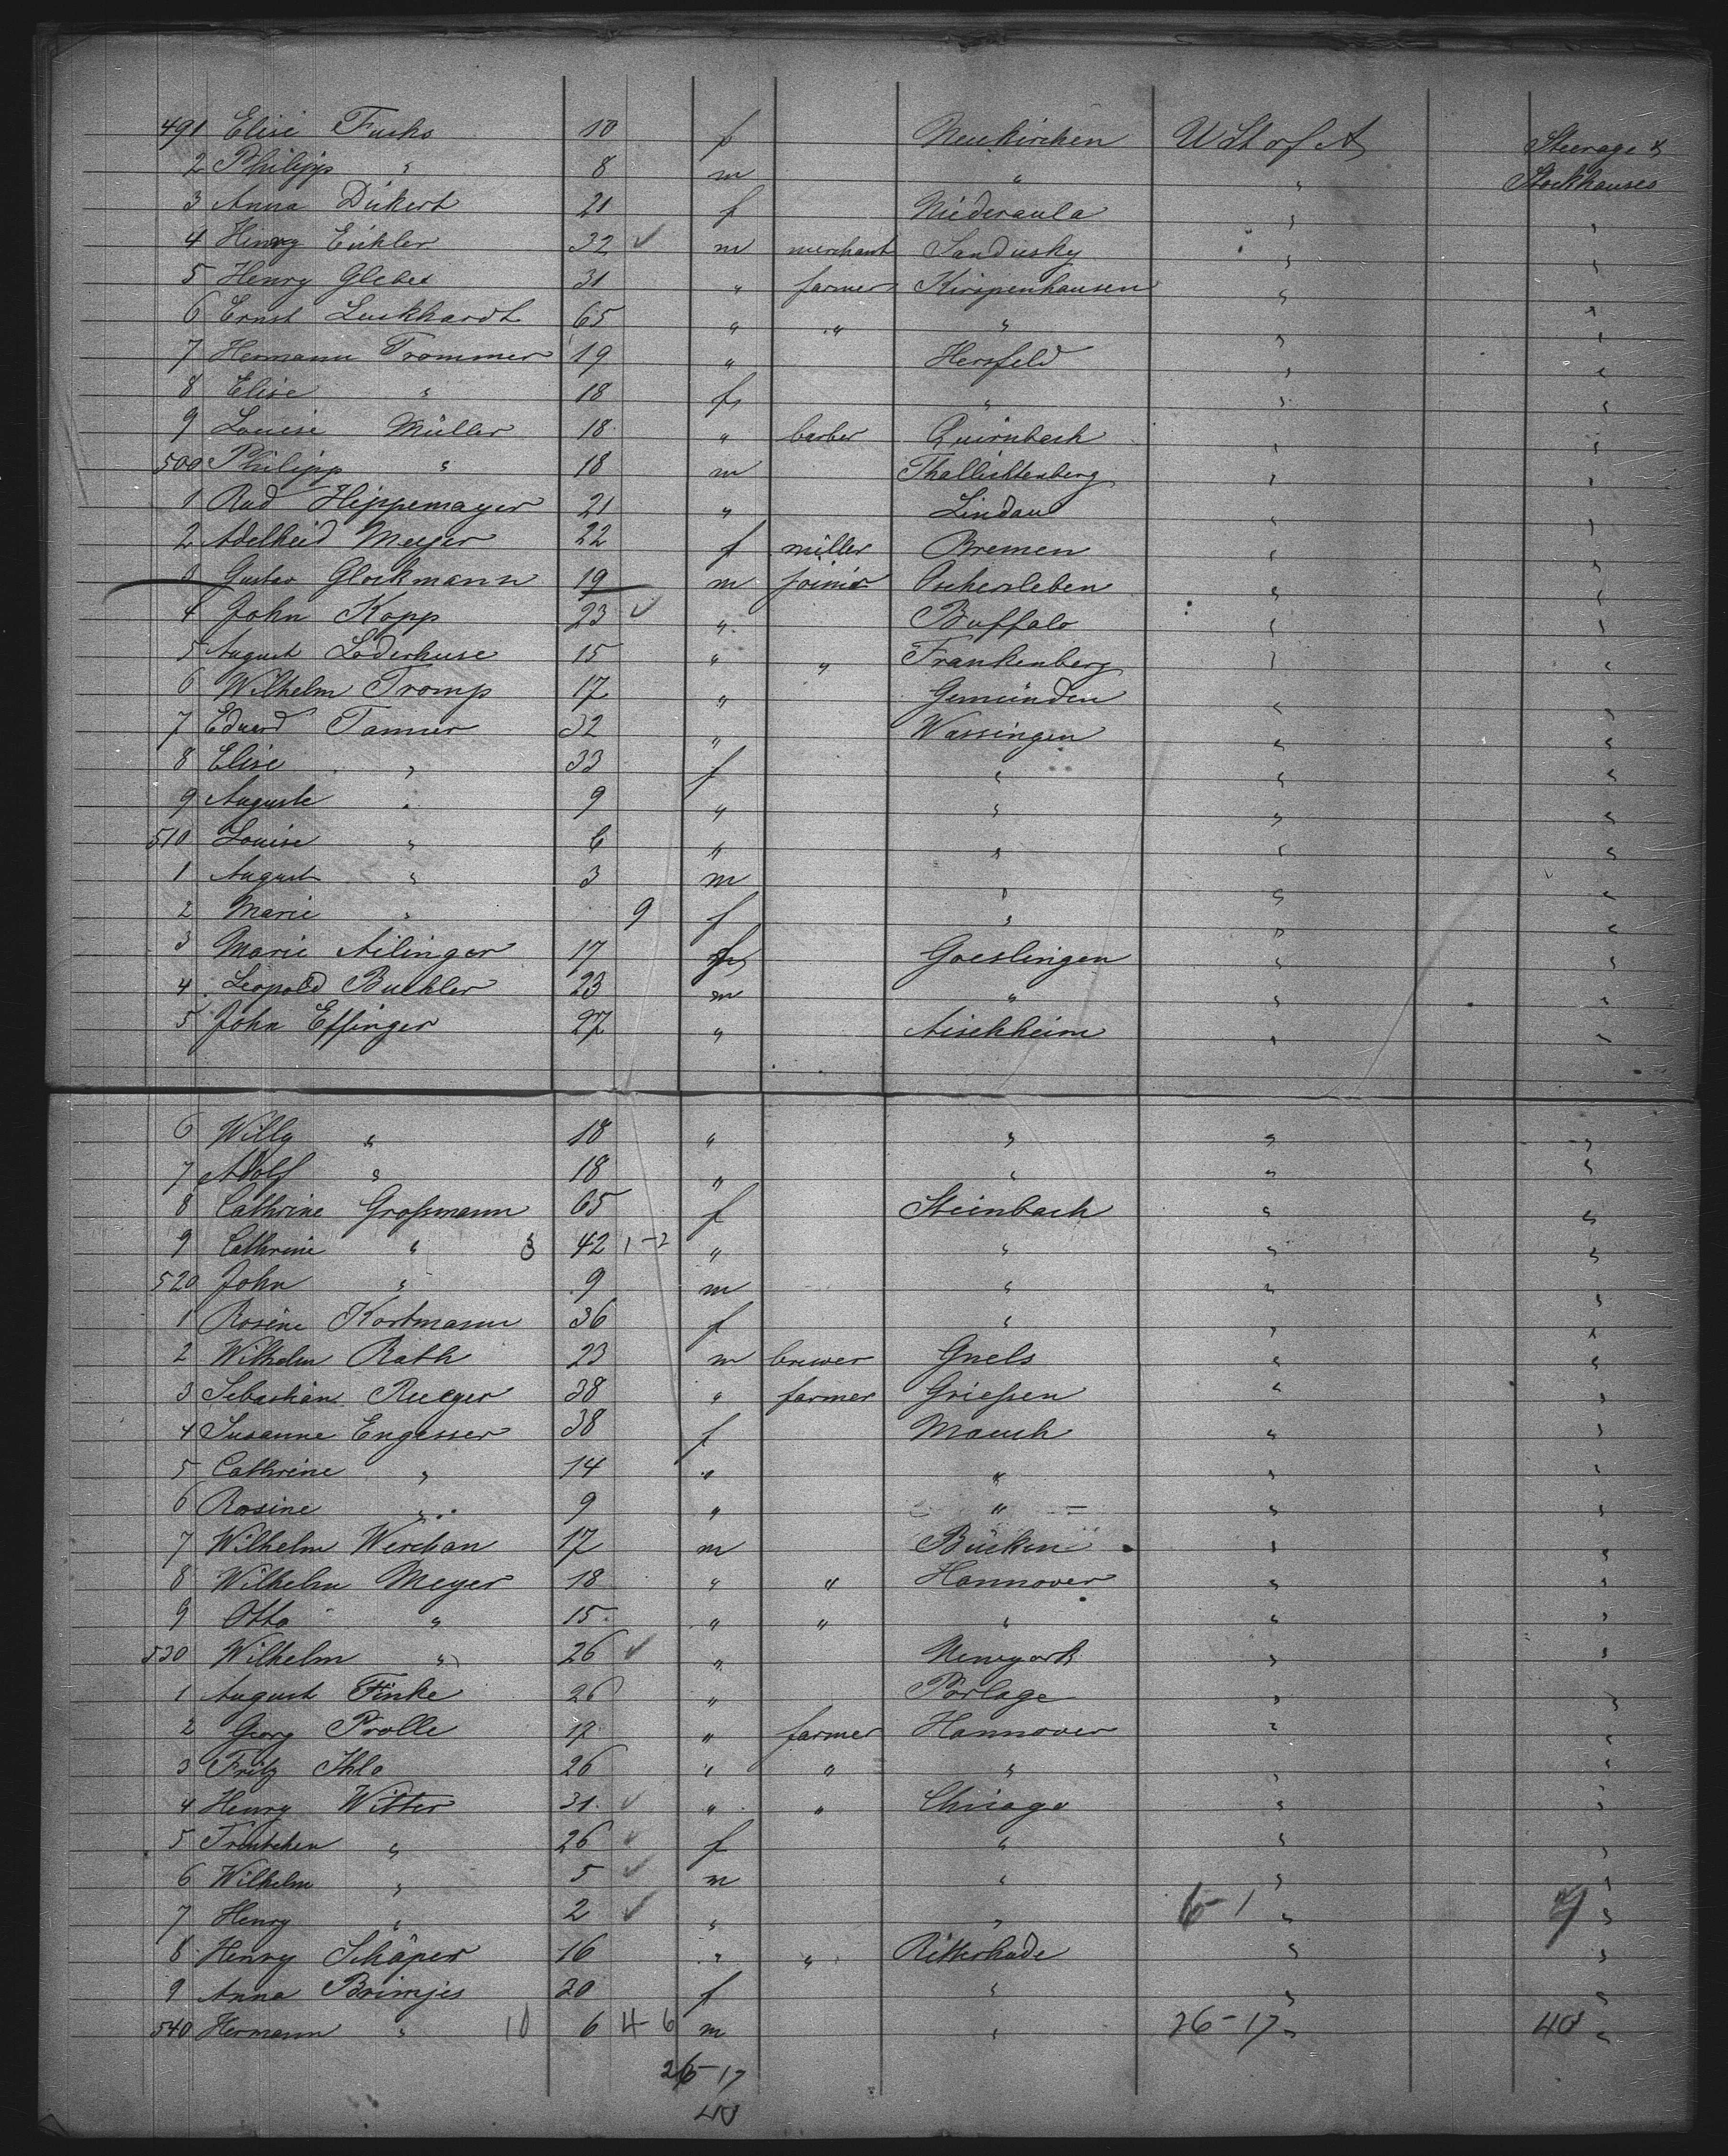 491 Elise Fuchs 10 f Neukirchen U St of A Steerage &
2 Philipp " 8 m " " Stockhauses
3 Anna Dickert 21 f Niederaula " "
4 Henry Eichler 32 ✓ m merchant Sandusky " "
5 Henry Glebes 31 " farmer Kirspenhausen " "
6 Ernst Luckhardt 65 " " " " "
7 Hermann Trommer 19 " Hersfeld " "
8 Elise " 18 f " " "
9 Louise Müller 18 " barber Quirnbach " "
500 Philipp " 18 m Thallichtenberg " "
1 Rud Hippemayer 21 " Lindau " "
2 Adelheid Meyer 22 f miller Bremen " "
3 Gustav Glockmann 19 m joiner Oschersleben " "
4 John Kopp 23 ✓ " Buffalo " "
5 August Loderhuse 15 " " Frankenberg " "
6 Wilhelm Tromp 17 " Gemünden " "
7 Eduard Tanner 32 " Wassingen " "
8 Elise " 33 f " " "
9 Auguste " 9 " " " "
510 Louise " 6 " " " "
1 August " 3 m " " "
2 Marie " 9 f " " "
3 Marie Ailinger 17 f Goeslingen " "
4 Leopold Buehler 23 m " " "
5 John Effinger 27 " Aischheim " "
6 Willy " 18 " " " "
7 Adolf " 18 " " " "
8 Cathrine Großmann 65 f Steinbach " "
9 Cathrine " 3 42 1-2 " " " "
520 John " 9 m " " "
1 Rosine Kortmann 36 f " " "
2 Wilhelm Rath 23 m brewer Gnels " "
3 Sebastian Rueger 38 " farmer Grießen " "
4 Susanne Engesser 38 f Mauch " "
5 Cathrine " 14 " " " "
6 Rosine " 9 " " " "
7 Wilhelm Werchan 17 m Bücken " "
8 Wilhelm Meyer 18 " " Hannover " "
9 Otto " 15 " " " " "
530 Wilhelm " 26 ✓ " Newyork " "
1 August Finke 26 " Porlage " "
2 Georg Prolle 17 " farmer Hannover " "
3 Fritz Ihlo 26 " " " " "
4 Henry Witter 31 ✓ " " Chicago " "
5 Trintchen " 26 ✓ f " " "
6 Wilhelm " 5 ✓ m " " "
7 Henry " 2 ✓ " " 6-1 " 9 "
8 Henry Schäper 16 " " Ritterhude " "
9 Anna Brimjes 20 f " " "
540 Hermann " 10 6 4-6 m " 26-17 " 40 "
26-17
40